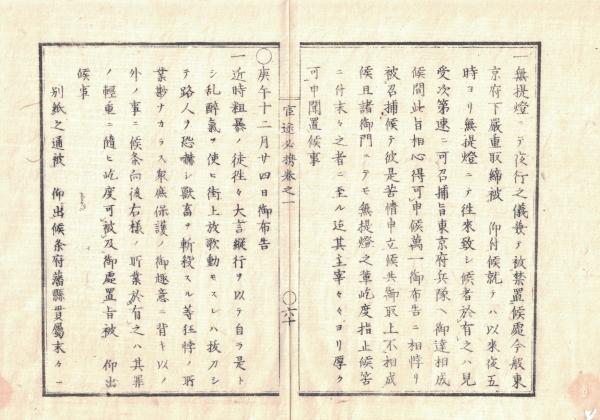 一無提燈ニテ夜行之儀兼テ被禁置候處今般東
京府下嚴重取締被　仰付候就テハ以来夜五
時ヨリ無提燈ニテ往来致シ候者於有之ハ見
受次第速ニ可召捕旨東京府兵隊ヘ御達相成
候間此旨相心得可申候萬一御布告ニ相悖リ
被召捕候テ彼是苦情申立候共御取上不相成
候且諸御門ニテモ無提燈之輩屹度指止候筈
ニ付末々之者ニ至ル迄其主宰々々ヨリ厚ク
可申聞置候事
官途必携巻之一
〇六十
〇庚午十二月廿四日御布告
一近時粗暴ノ徒往々大言縦行ヲ以テ自ラ是ト
シ乱酔氣ヲ使ヒ街上放歌動モスレハ抜刀シ
テ路人ヲ恐嚇シ獣畜ヲ斬殺スル等狂悖ノ所
業尠ナカラス衆庶保護ノ御趣意ニ背キ以ノ
外ノ事ニ候条向後右様ノ所業於有之ハ其罪
ノ輕重ニ随ヒ屹度可被及御處置旨被　仰出
候事
別紙之通被　仰出候条府藩縣貫屬末々ニ